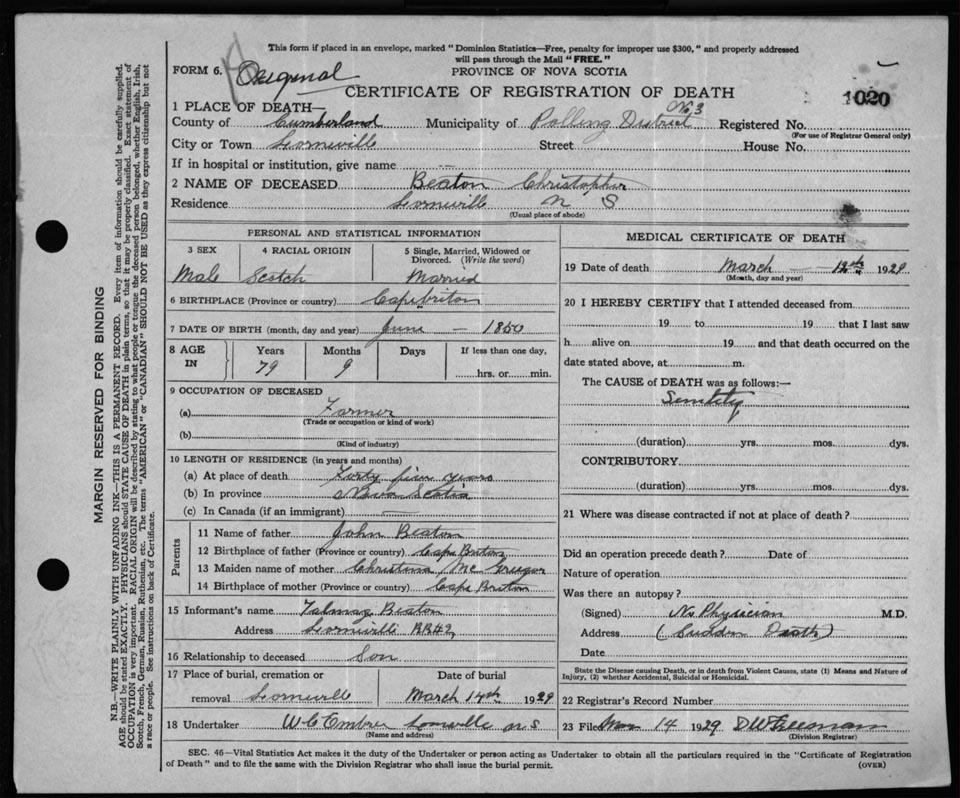 This form if placed in an envelope, marked "Dominion Statistics—Free, penalty for improper use $300," and properly addressed
will pass through the Mail "FREE."
FORM 6. Original
PROVINCE OF NOVA SCOTIA
CERTIFICATE OF REGISTRATION OF DEATH
1020
1 PLACE OF DEATH—
County of Cumberland Municipality of Polling District No. 3 Registered No.
(For use of Registrar General only)
City or Town Lorneville Street House No.
If in hospital or institution, give name —
2 NAME OF DECEASED Beaton Christopher
Residence Lorneville N S
(Usual place of abode)
PERSONAL AND STATISTICAL INFORMATION
3 SEX 4 RACIAL ORIGIN 5 Single, Married, Widowed or Divorced. (Write the word)
Male Scotch Married
6 BIRTHPLACE (Province or country) Cape briton
7 DATE OF BIRTH (month, day and year) June — 1850
8 AGE IN Years Months Days If less than one day,
79 9 hrs. or min.
9 OCCUPATION OF DECEASED
(a) Farmer
(Trade or occupation or kind of work)
(b)
(Kind of industry)
10 LENGTH OF RESIDENCE (in years and months)
(a) At place of death Forty five years
(b) In province Nova Scotia
(c) In Canada (if an immigrant) —
Parents
11 Name of father John Beaton
12 Birthplace of father (Province or country) Cape Briton
13 Maiden name of mother Christina Mc Gregor
14 Birthplace of mother (Province or country) Cape Briton
15 Informant's name Talmag Beaton
Address Lorneville RR#2
16 Relationship to deceased Son
17 Place of burial, cremation or removal Lorneville Date of burial March 14th 1929
18 Undertaker W C Embree Lorneville N S
(Name and address)
MEDICAL CERTIFICATE OF DEATH
19 Date of death March — 12th 1929
(Month, day and year)
20 I HEREBY CERTIFY that I attended deceased from
19 to 19 that I last saw
h alive on 19 and that death occurred on the
date stated above, at m.
The CAUSE of DEATH was as follows:—
Senility
(duration) yrs. mos. dys.
CONTRIBUTORY
(duration) yrs. mos. dys.
21 Where was disease contracted if not at place of death?
Did an operation precede death? Date of
Nature of operation
Was there an autopsy?
(Signed) No Physician M.D.
Address (Sudden Death)
Date
State the Disease causing Death, or in death from Violent Causes, state (1) Means and Nature of
Injury, (2) whether Accidental, Suicidal or Homicidal.
22 Registrar's Record Number
23 Filed Mar 14 1929 D W Freeman
(Division Registrar)
SEC. 46—Vital Statistics Act makes it the duty of the Undertaker or person acting as Undertaker to obtain all the particulars required in the "Certificate of Registration
of Death" and to file the same with the Division Registrar who shall issue the burial permit.
(OVER)
MARGIN RESERVED FOR BINDING
N.B.—WRITE PLAINLY WITH UNFADING INK—THIS IS A PERMANENT RECORD. Every item of information should be carefully supplied.
AGE should be stated EXACTLY. PHYSICIANS should STATE CAUSE OF DEATH in plain terms, so that it may be properly classified. Exact statement of
OCCUPATION is very important. RACIAL ORIGIN will be described by stating to what people or tongue the deceased person belonged, whether English, Irish,
Scotch, French, German, Russian, Ruthenian, etc. The terms "AMERICAN" or "CANADIAN" SHOULD NOT BE USED as they express citizenship but not
a race or people. See instructions on back of Certificate.